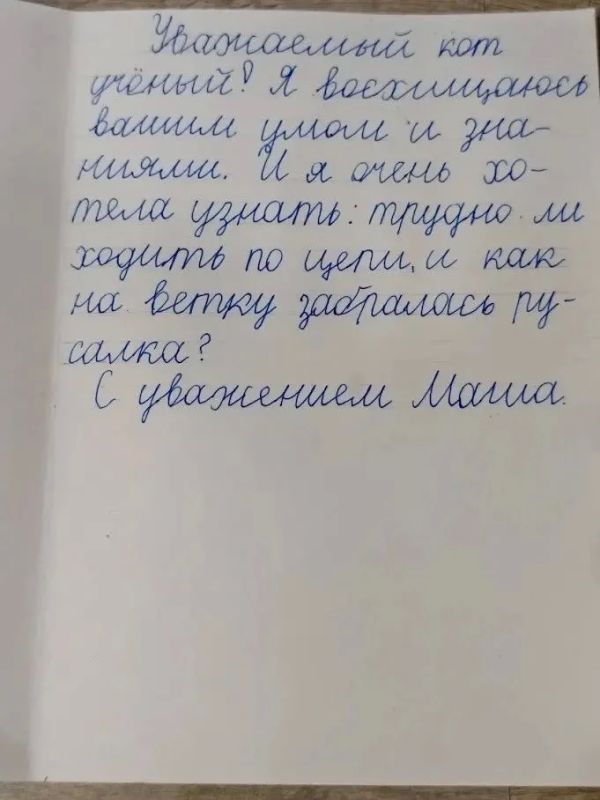 Уважаемый кот
учёный! Я восхищаюсь
вашим умом и зна-
ниями. И я очень хо-
тела узнать: трудно ли
ходить по цепи, и как
на ветку забралась ру-
салка?
С уважением Маша.